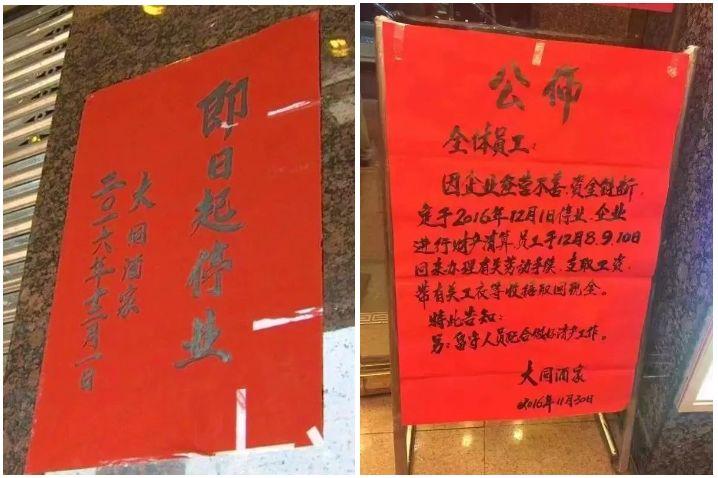 即日起停业
大同酒家
二〇一六年十二月一日
公佈
全体员工：
因企业经营不善，资金链断，
定于2016年12月1日停业，企业
进行财产清算，员工于12月8.9.10日
回来办理有关劳动手续，支取工资，
带有关工衣等收据取回现金。
特此告知：
另：留守人员配合做好清产工作。
大同酒家
2016年11月30日